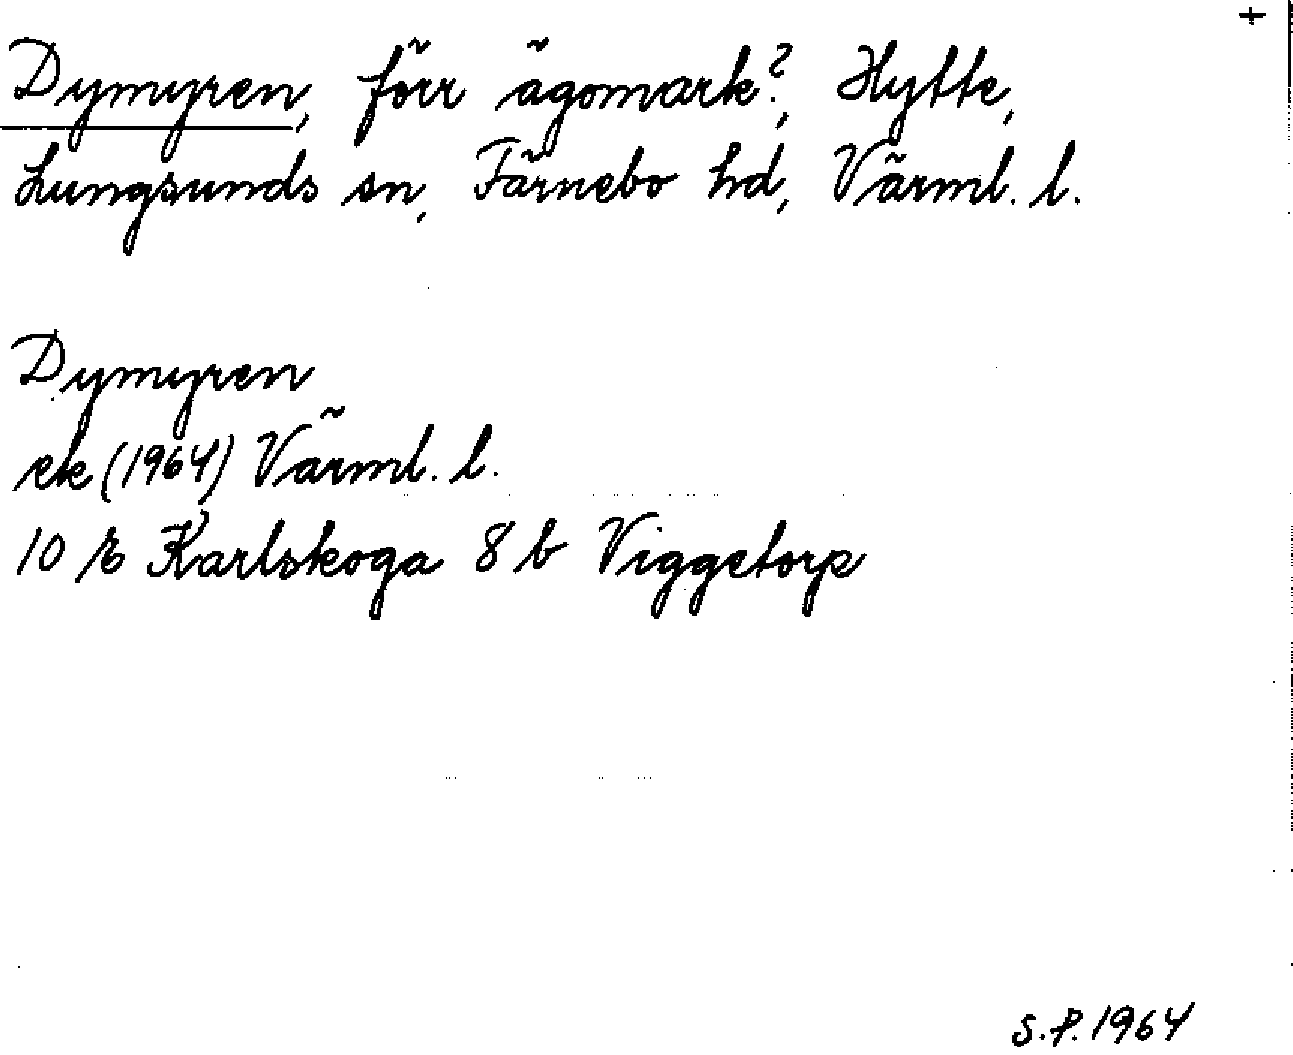 +
Dymyren, förr ägomark?, Hytte,
Lungsunds sn, Färnebo hd, Värml. l.
Dymyren
ek (1964) Värml. l.
10 E Karlskoga 8 b Viggetorp
S.P. 1964